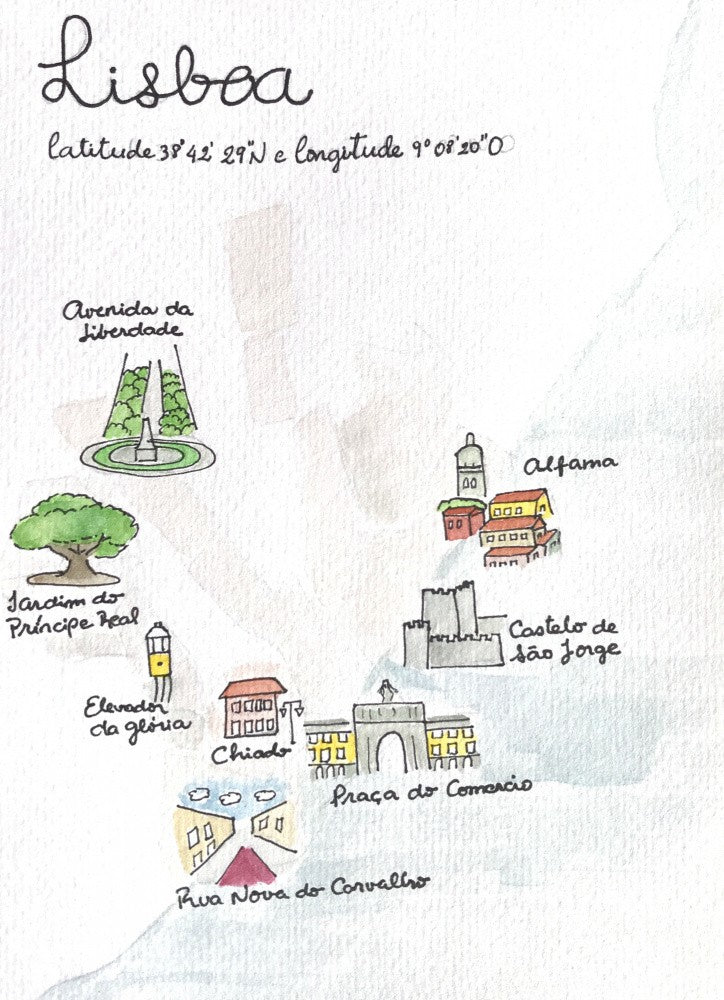 Lisboa
latitude 38° 42' 29"N e longitude 9° 08' 20" O
Avenida da
Liberdade
Alfama
Jardim do
Príncipe Real
Castelo de
São Jorge
Elevador
da glória
Chiado
Praça do Comercio
Rua Nova do Carvalho